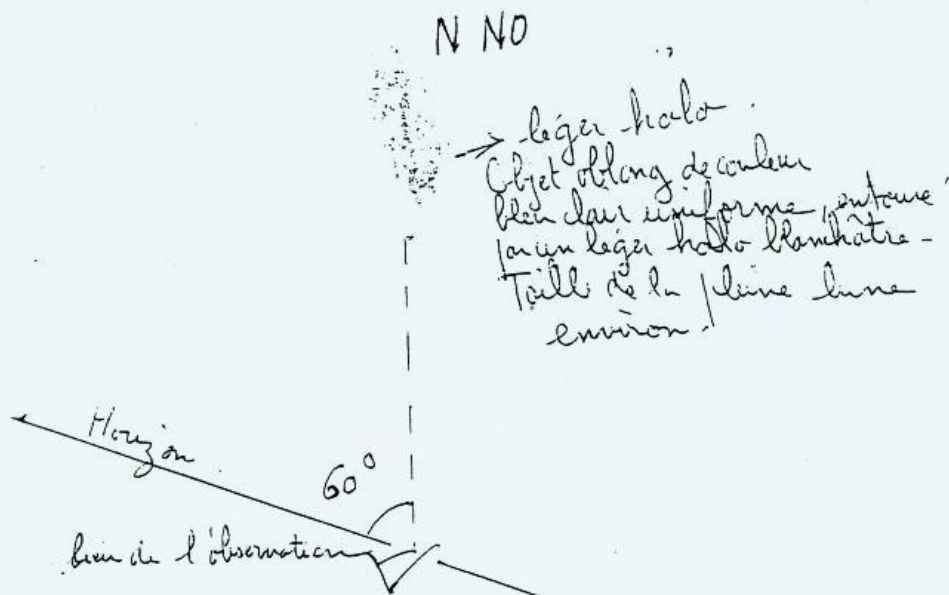 N NO
léger halo.
Objet oblong de couleur
bleu clair uniforme, entouré
par un léger halo blanchâtre -
Taille de la pleine lune
environ.
Horizon
60°
lieu de l'observation